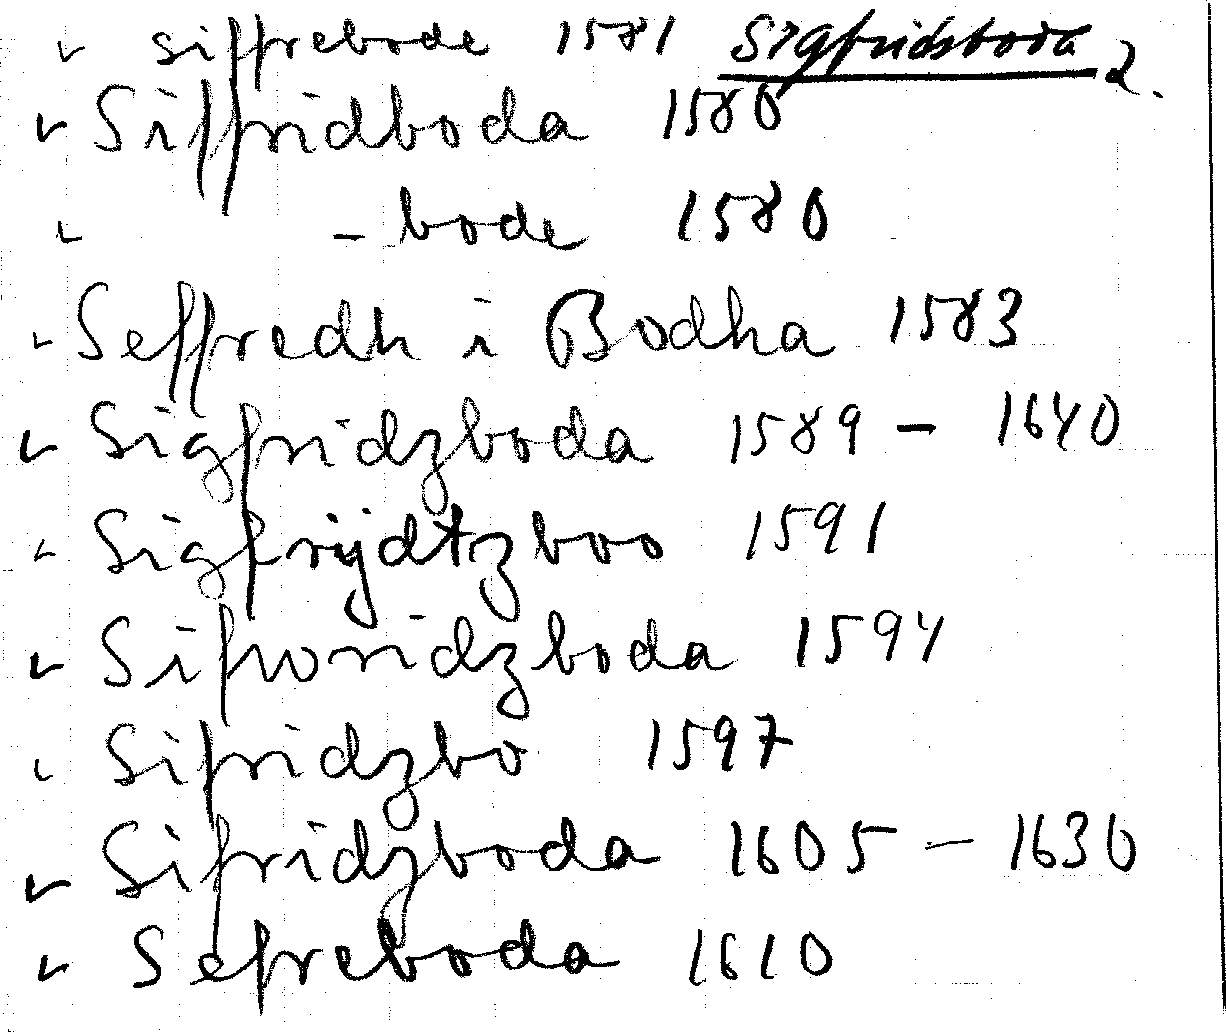 siffrebode 1581 Sigfridsboda 2.
Siffridboda 1580
- bode 1580
Seffredh i Bodha 1583
Sigfridzboda 1589 - 1640
Sigfrijdtzboo 1591
Sifworidzboda 1594
Sifridzbo 1597
Sifridzboda 1605 - 1630
Sefreboda 1610